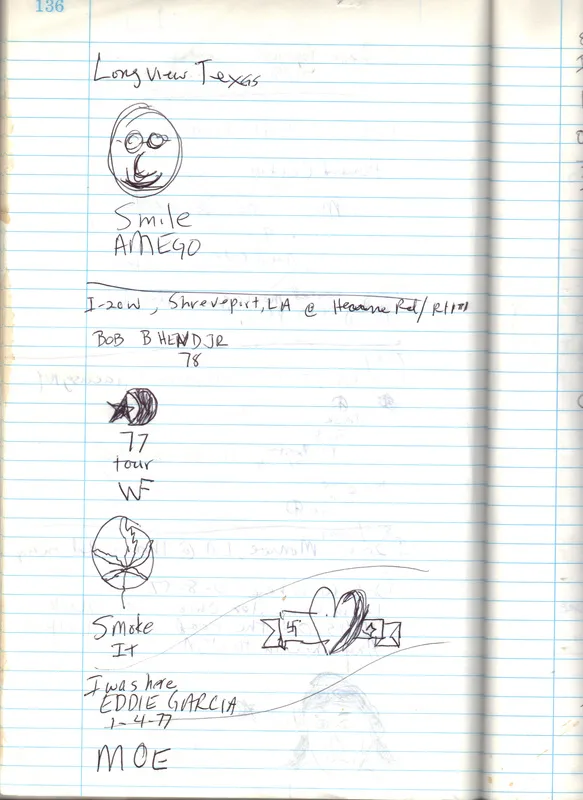 136
Longview Texas
Smile
AMEGO
I-20W, Shreveport, LA @ Hearne Rd/
BOB B HEND JR
78
77
tour
WF
Smoke
It
I was here
EDDIE GARCIA
1-4-77
MOE